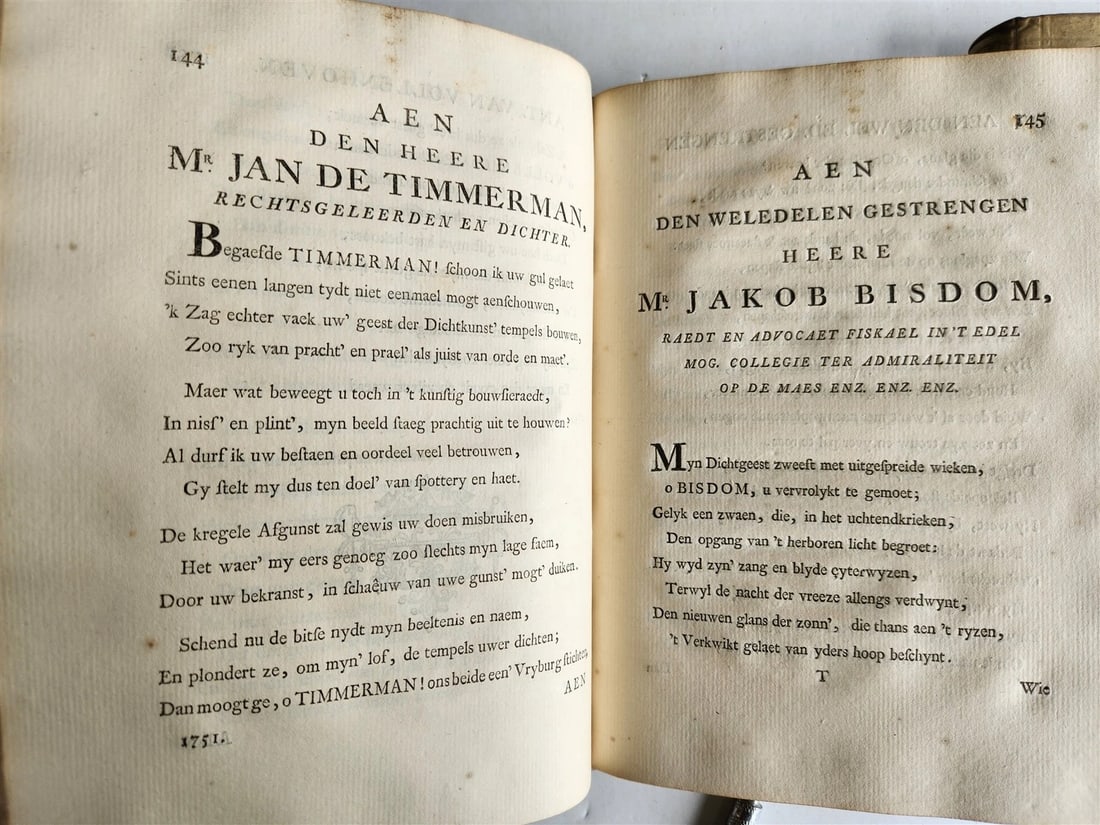 144
AEN
DEN HEERE
Mr. JAN DE TIMMERMAN,
RECHTSGELEERDEN EN DICHTER.
Begaefde TIMMERMAN! ſchoon ik uw gul gelaet
Sints eenen langen tydt niet eenmael mogt aenſchouwen,
'k Zag echter vaek uw' geest der Dichtkunst' tempels bouwen,
Zoo ryk van pracht' en prael' als juist van orde en maet'.
Maer wat beweegt u toch in 't kunſtig bouwſieraedt,
In nisſ' en plint', myn beeld ſtaeg prachtig uit te houwen?
Al durf ik uw beſtaen en oordeel veel betrouwen,
Gy ſtelt my dus ten doel' van ſpottery en haet.
De kregele Afgunst zal gewis uw doen misbruiken,
Het waer' my eers genoeg zoo ſlechts myn lage faem,
Door uw bekranst, in ſchaêuw van uwe gunst' mogt' duiken.
Schend nu de bitſe nydt myn beeltenis en naem,
En plondert ze, om myn' lof, de tempels uwer dichten;
Dan moogt ge, o TIMMERMAN! ons beide een' Vryburg ſtichten.
1751.
AEN
145
AEN
DEN WELEDELEN GESTRENGEN
HEERE
Mr. JAKOB BISDOM,
RAEDT EN ADVOCAET FISKAEL IN 'T EDEL
MOG. COLLEGIE TER ADMIRALITEIT
OP DE MAES ENZ. ENZ. ENZ.
Myn Dichtgeest zweeft met uitgeſpreide wieken,
o BISDOM, u vervrolykt te gemoet;
Gelyk een zwaen, die, in het uchtendkrieken,
Den opgang van 't herboren licht begroet:
Hy wyd zyn' zang en blyde cyterwyzen,
Terwyl de nacht der vreeze allengs verdwynt,
Den nieuwen glans der zonn', die thans aen 't ryzen,
't Verkwikt gelaet van yders hoop beſchynt.
T
Wie